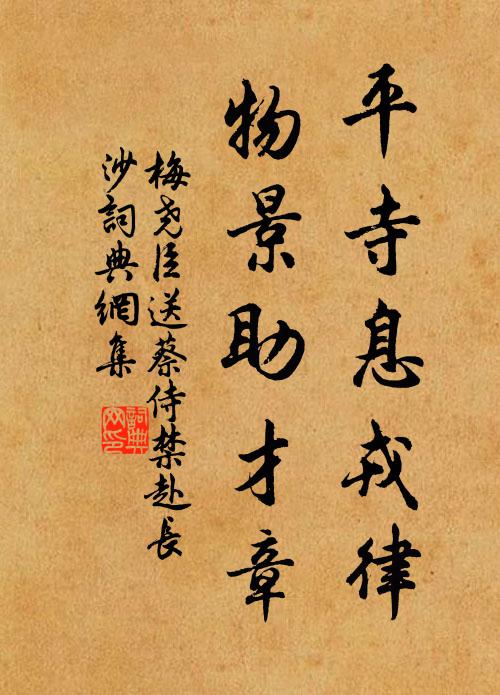 平寺息戎律
物景助才章
梅尧臣送蔡侍禁赴長
沙詞典網集
詞典网印